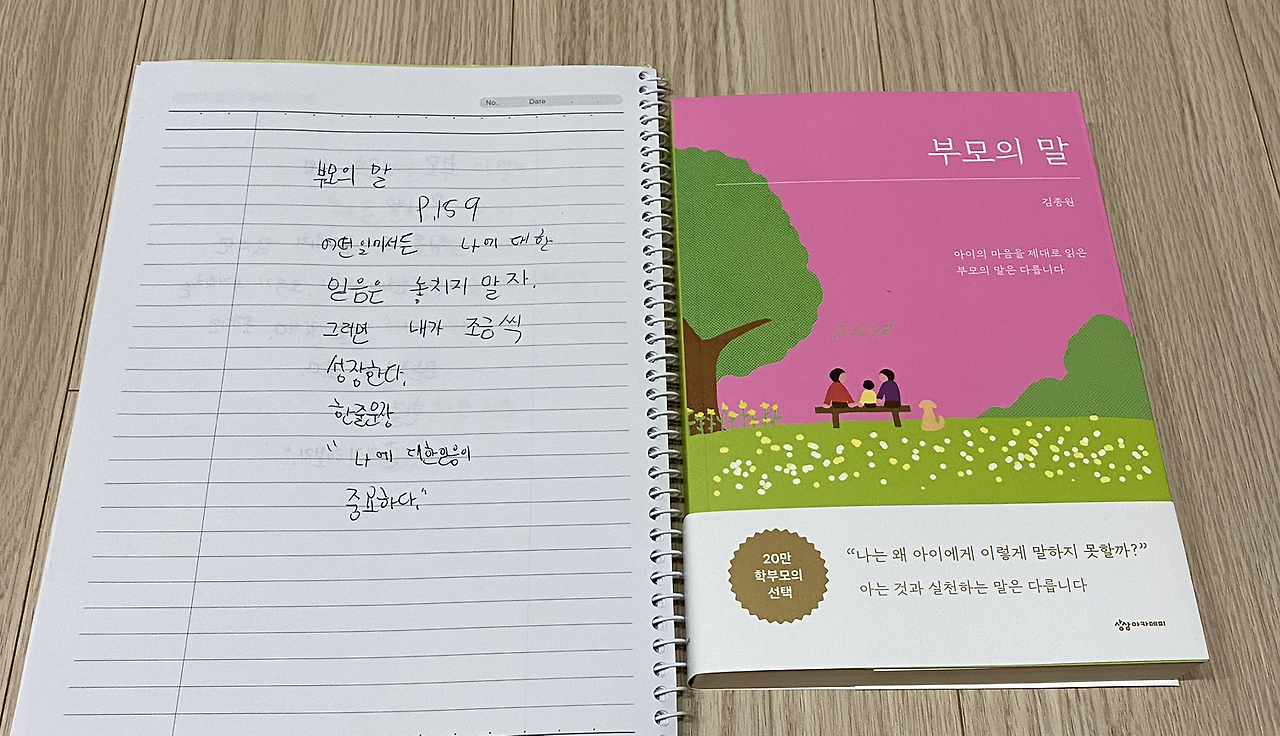 No. Date
부모의 말
P.159
어떤일에서든 나에 대한
믿음은 놓치지 말자.
그러면 내가 조금씩
성장한다.
한줄문장
"나에 대한믿음이
중요하다."
부모의 말
김종원
아이의 마음을 제대로 읽은
부모의 말은 다릅니다
20만
학부모의
선택
“나는 왜 아이에게 이렇게 말하지 못할까?”
아는 것과 실천하는 말은 다릅니다
상상아카데미